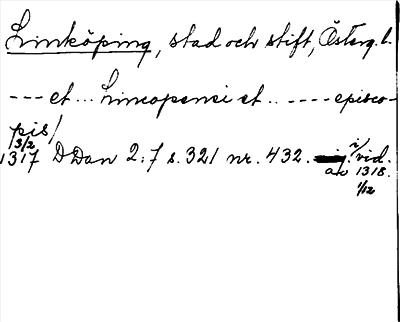 Linköping, stad och stift, Österg. l.
--- et ... Lincopensi et .. ---- episco-
pis/
3/2
1317 DDan 2:7 s. 321 nr. 432. i vid.
av 1318.
1/12